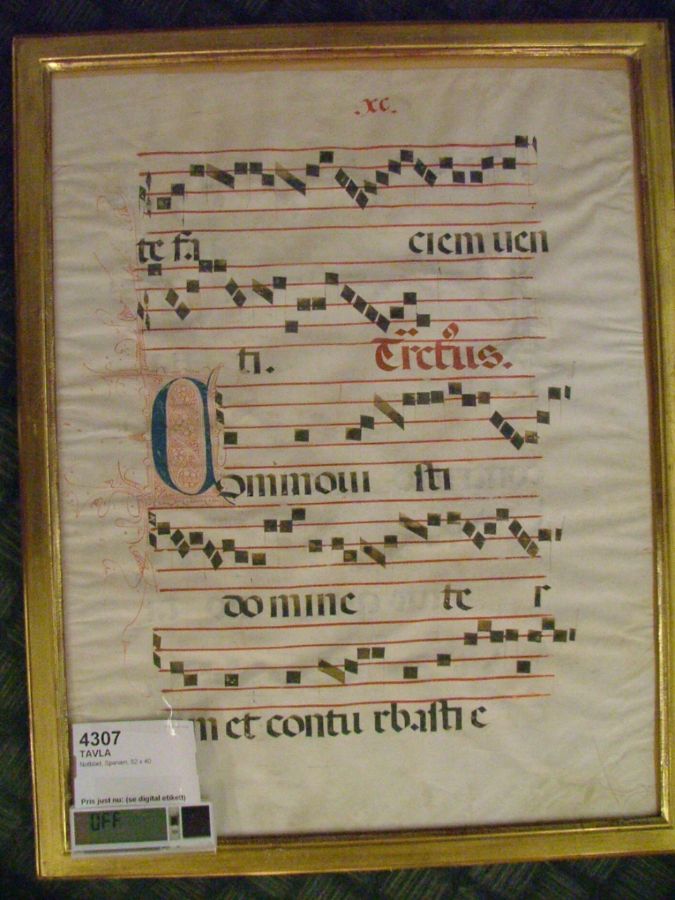 .xc.
te fa ciem uen
ti. Trctus.
Commoui sti
domine te r
m et contu rbasti e
4307
TAVLA
Notblad, Spanien, 52 x 40
Pris just nu: (se digital etikett)
OFF